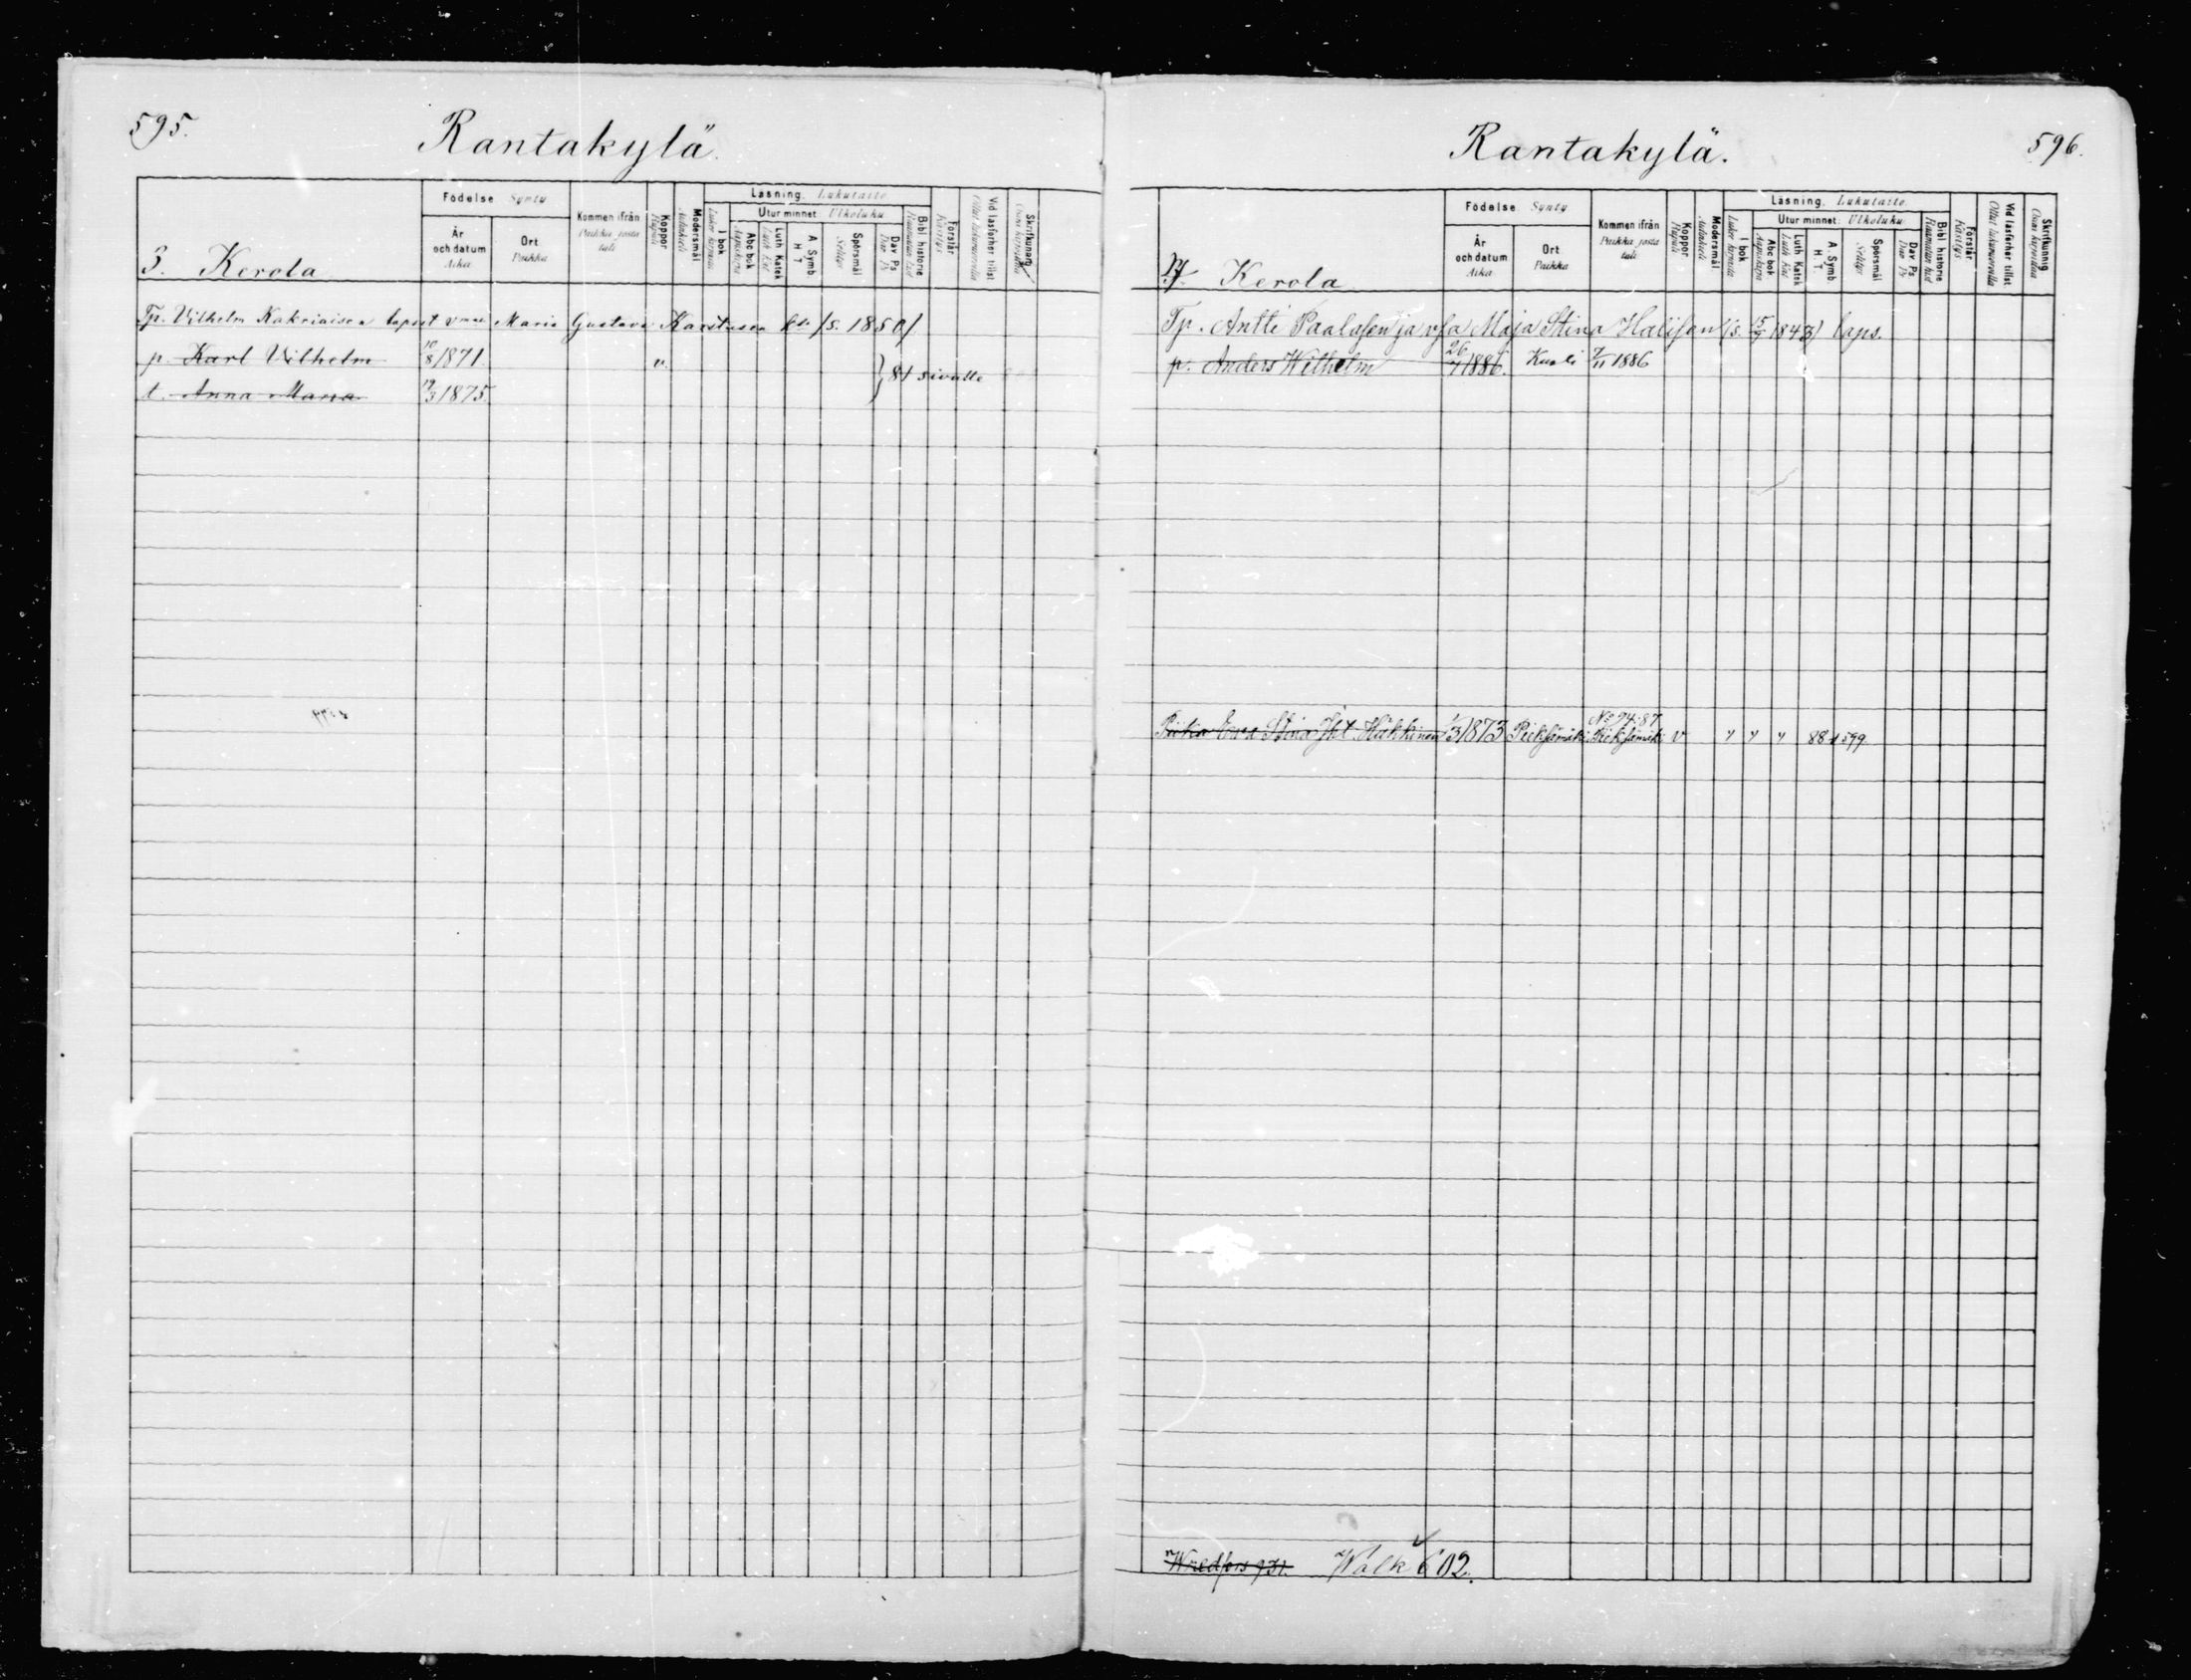 595.
Rantakylä.
3. Kerola
Födelse Synty
År och datum Aika
Ort Paikka
Kommen ifrån Paikka josta tuli
Koppor Rupuli
Modersmål Äidinkieli
Läsning. Lukutaito
I bok Luku kirjasta
Utur minnet Ulkoluku
Abc bok Aapiskirja
Luth Katek Luth Kat
A Symb H T
Spörsmål Selitys
Dav Ps Dav Ps
Bibl historie
Förstår Käsitys
Vid läsförhör tillst Ollut lukuvuorolla
Skrifkunnig Osaa kirjoittaa
Tp. Vilhelm Kakriaisen lapset vmsa Maria Gustava Karstusen kts /s. 1850/
p. Karl Vilhelm 10/8 1871. v. } 81 sivulle
t. Anna Maria 19/3 1875.
Rantakylä.
596.
Kerola
Födelse Synty
År och datum Aika
Ort Paikka
Kommen ifrån Paikka josta tuli
Koppor Rupuli
Modersmål Äidinkieli
Läsning. Lukutaito
I bok Luku kirjasta
Utur minnet: Ulkoluku
Abc bok Aapiskirja
Luth Katek Luth Kat
A Symb. H. T.
Spörsmål Selitys
Dav Ps Dav Ps
Bibl historie
Förstår Käsitys
Vid läsförhör tillst Ollut lukuvuorolla
Skrifkunnig Osaa kirjoittaa
Tp. Antti Paalasen ja vsa Maja Stina Halisen (s. 15/9 1843) laps.
p. Anders Wilhelm 26/1 1886. Kuoli 7/11 1886
No 74:87
Piika Eeva Stina Häkkinen 1/3 1873 Pieksämäki Pieksämäki v " " " 88 s 599
Wredfors 731. Walk 602.